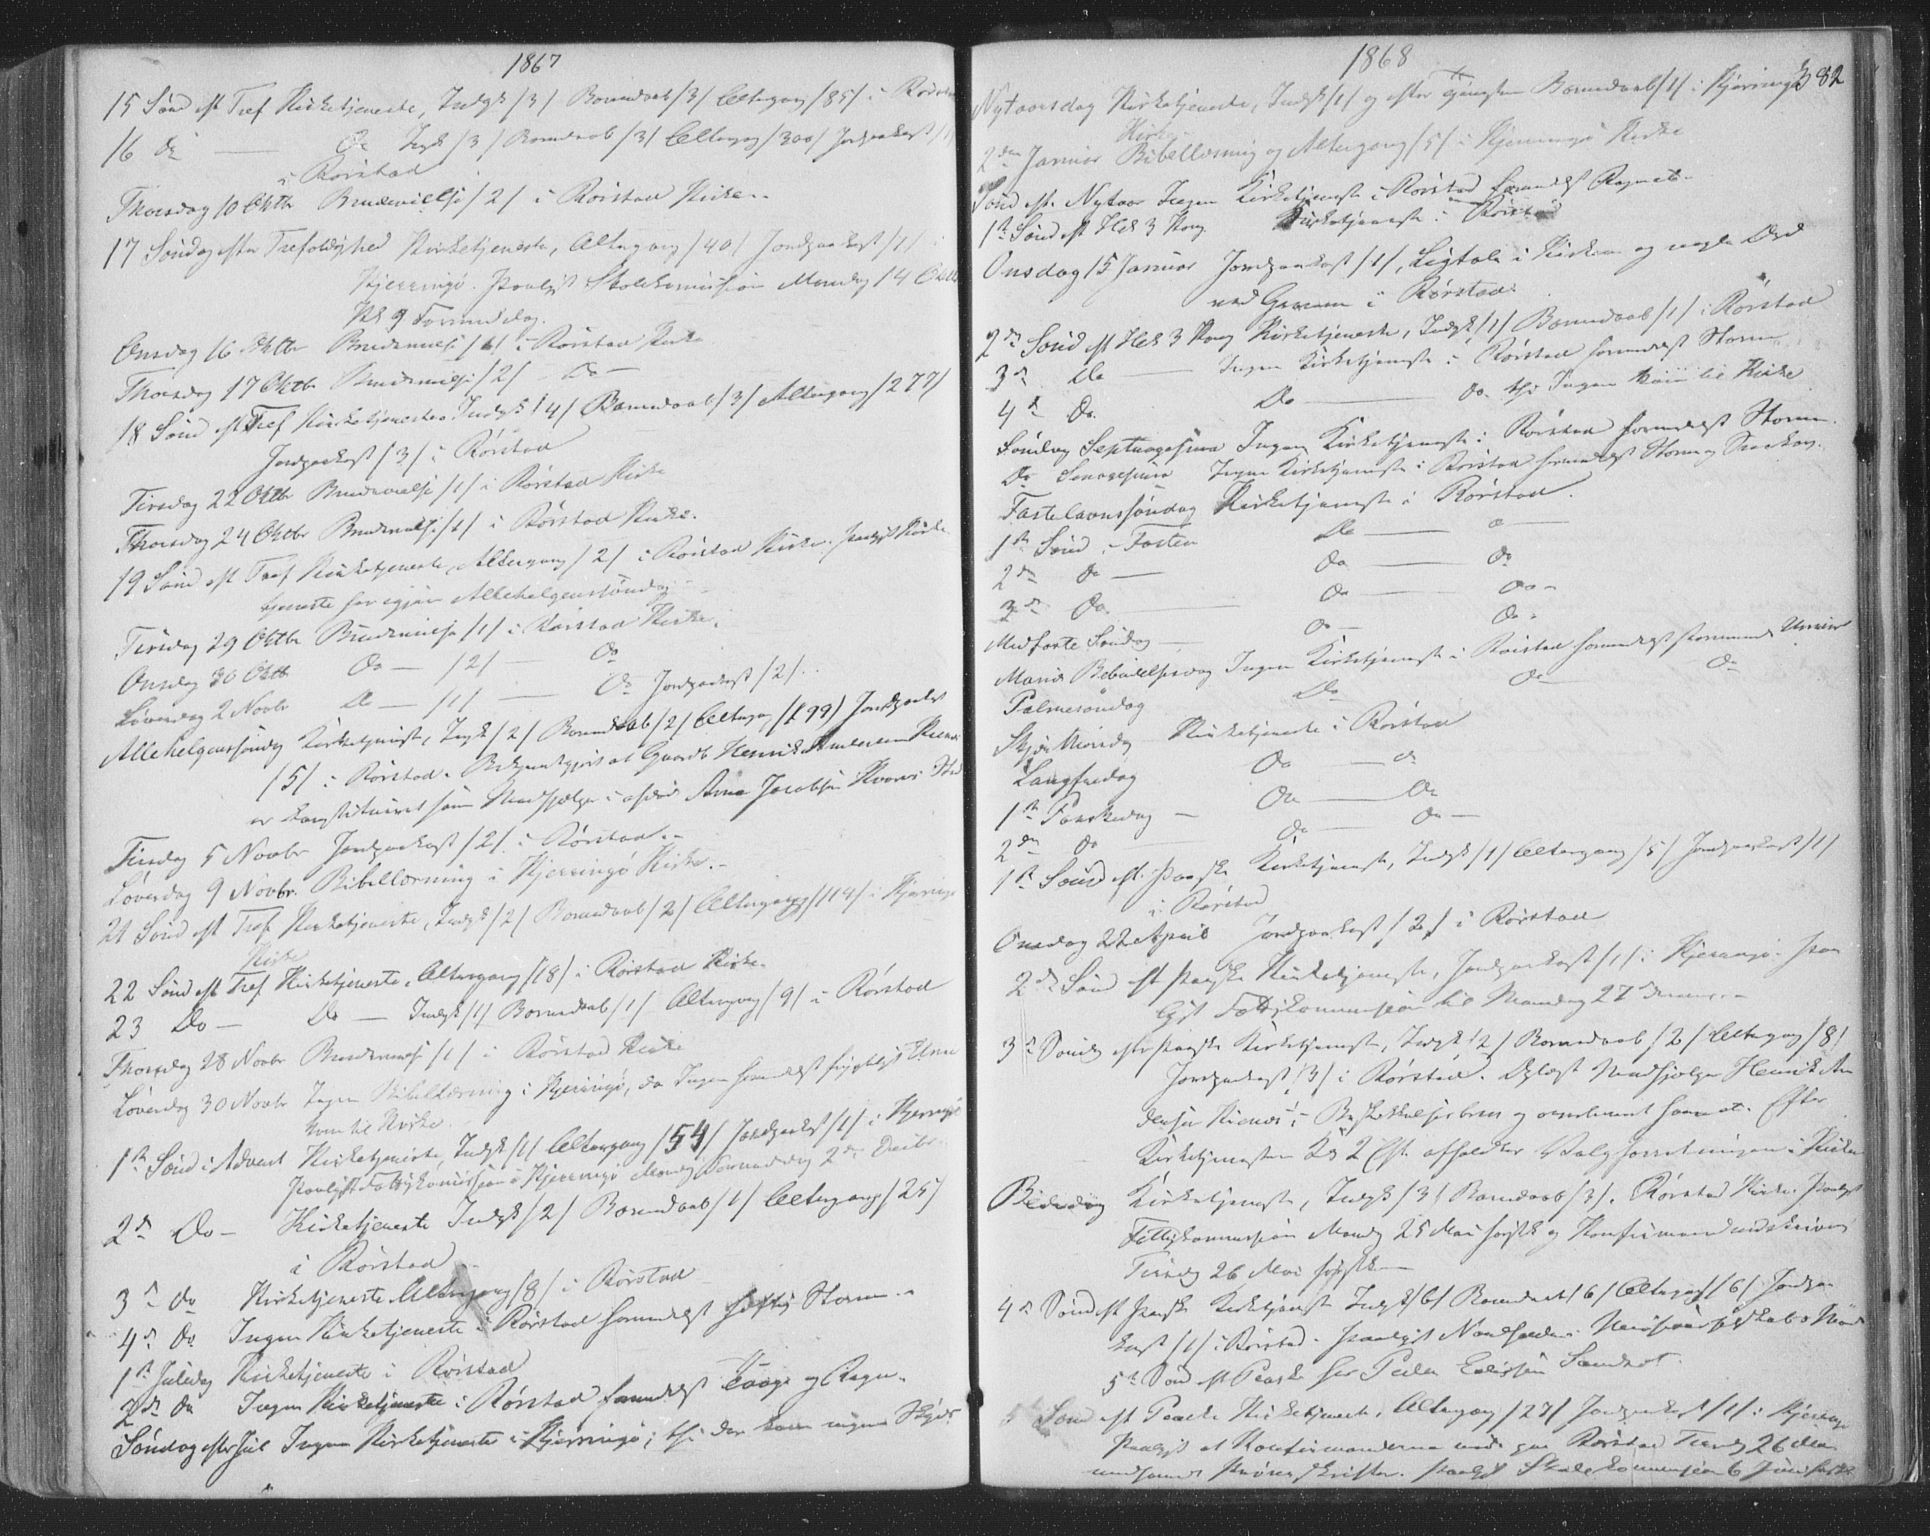 1867
15 Sønd eft Tref Kirketjeneste, Indgk /3/ Barnedaab /3/ Altergang /85/ i Rørstad
16 do — Do Indgk /3/ Barnedaab /3/ Altergang /300/ Jordpaakast
i Rørstad
Thorsdag 10 Oktbr Brudevielse /2/ i Rørstad Kirke.
17 Søndag efter Trefoldighed Kirketjeneste, Altergang /40/ Jordpaakast /1/ i
Kjerringø. Paalyst Skolekomission Mandag 14 Oktbr
Kl 9 Formiddag.
Onsdag 16 Oktbr Brudevielse /1/ i Rørstad Kirke
Thorsdag 17 Oktbr Brudevielse /2/ — Do —
18 Sønd eft Tref Kirketjeneste Indgk /4/ Barnedaab /3/ Altergang /277/
Jordpaakast /3/ i Rørstad
Tirsdag 22 Oktbr Brudevielse /1/ i Rørstad Kirke
Thorsdag 24 Oktbr Brudevielse /1/ i Rørstad Kirke.
19 Sønd eft Tref Kirketjeneste, Altergang /2/ i Rørstad Kirke. Paalyst Kirke
tjeneste her igjen Allehelgenssøndag
Tirsdag 29 Oktbr Brudevielse /1/ i Rørstad Kirke.
Onsdag 30 Oktb Do — /2/ — Do
Løverdag 2 Novbr Do — /1/ — Do Jordpaakast /2/.
Allehelgenssøndag Kirketjeneste, Indgk /2/ Barnedaab /2/ Altergang /199/ Jordpaakast
/5/ i Rørstad. Bekjendtgjort at Gaardb Henrik Andersen
er konstitueret som Medhjælper i afdød Arne Jacobsen
Tirsdag 5 Novbr Jordpaakast /2/ i Rørstad.
Løverdag 9 Novbr. Bibellæsning i Kjerringø Kirke.
21 Sønd eft Tref Kirketjeneste, Indgk /2/ Barnedaab /2/ Altergang /114/ i Kjerringø
Kirke
22 Sønd eft Tref Kirketjeneste, Altergang /18/ i Rørstad Kirke.
23 Do — Do — Indgk /1/ Barnedaab /1/ Altergang /9/ i Rørstad
Thorsdag 28 Novbr Brudevielse /1/ i Rørstad Kirke
Løverdag 30 Novbr Ingen Bibellæsning i Kjerringø, da Ingen formedelst
kom til Kirke.
1ste Sønd i Advent Kirketjeneste, Indgk /1/ Altergang /54/ Jordpaakast /1/ i Kjerringø
Paalyst Fattigkomission i Kjerringø Mandag Formiddag 2den Decbr.
2den Do — Kirketjeneste Indgk /2/ Barnedaab /1/ Altergang /25/
i Rørstad
3die do Kirketjeneste Altergang /8/ i Rørstad
4de Do Ingen Kirketjeneste i Rørstad formedelst heftig Storm.
1ste Juledag Kirketjeneste i Rørstad
2den do Ingen Kirketjeneste i Rørstad formedelst Taage og Regn.
Søndag efter Jul Ingen Kirketjeneste i Kjerringø; thi der kom ingen Skyds
1868
382
Nytaarsdag Kirketjeneste, Indgk /1/ og efter Barnedaab /1/ i Kjerringø
Kirke
2den Januar Bibellæsning og Altergang /5/ i Kjerringø Kirke
Sønd eft. Nytaar Ingen Kirketjeneste i Rørstad formedelst
1ste Sønd eft Hel 3 Kong Kirketjeneste i Rørstad
Onsdag 15 Januar Jordpaakast /1/, Ligtale i Kirken og nogle Ord
ved Graven i Rørstad.
2den Sønd eft Hel 3 Kong Kirketjeneste, Indgk /1/ Barnedaab /1/ i Rørstad
3die Do — Ingen Kirketjeneste i Rørstad formedelst Storm
4de Do. Do — do. thi Ingen kom til Kirke
Søndag Septuagesima Ingen Kirketjeneste i Rørstad formedelst Storm.
Do Sexagesima Ingen Kirketjeneste i Rørstad formedelst Storm og Sneekov.
Fastelavnssøndag Kirketjeneste i Rørstad.
1ste Sønd i Fasten Do —
2den do — Do — Do
3die Do. — Do — Do —
Midfaste Søndag — Do — Do.
Mariæ Bebudelsesdag Ingen Kirketjeneste i Rørstad formedelst stormende Uveir
Palmesøndag Do Do Do
Skjærthorsdag Kirketjeneste i Rørstad
Langfredag Do — do
1ste Paaskedag — Do — Do
2den do Do — Do —
1ste Sønd eft. Paaske Kirketjeneste, Indgk /1/ Altergang /5/ Jordpaakast /1/
i Rørstad
Onsdag 22 April Jordpaakast /2/ i Rørstad
2den Sønd eft Paaske Kirketjeneste, Jordpaakast /1/ i Kjerringø. Paa
lyst Fattigkommission til Mandag 27
3die Søndag efter Paaske Kirketjeneste, Indgk /2/ Barnedaab /2/ Altergang /8/
Jordpaakast /3/ i Rørstad. Oplæst Medhjælper Henrik An
dersen og
Kirketjenesten Kl 2 Eft. afholdtes Valgforretningen i Kirken
Bededag Kirketjeneste, Indgk /3/ Barnedaab /3/. Rørstad Kirke. Paalyst
Fattigkommission Mandag 25 Mai førstk og Konfirmandindskrivning
Tirsdag 26 Mai førstk —
4de Sønd eft Paaske Kirketjeneste Indgk /6/ Barnedaab /6/ Altergang /6/ Jordpaa
kast /1/ i Rørstad. Paalyst
5te Sønd eft Paaske her Peder
5 Sønd eft Paaske Kirketjeneste, Altergang /27/ Jordpaakast /1/ i Kjerringø
Paalyst at Konfirmanderne møde paa Rørstad Tirsdag 26 Mai
Paalyst Skolekommission 6 Juni førstk